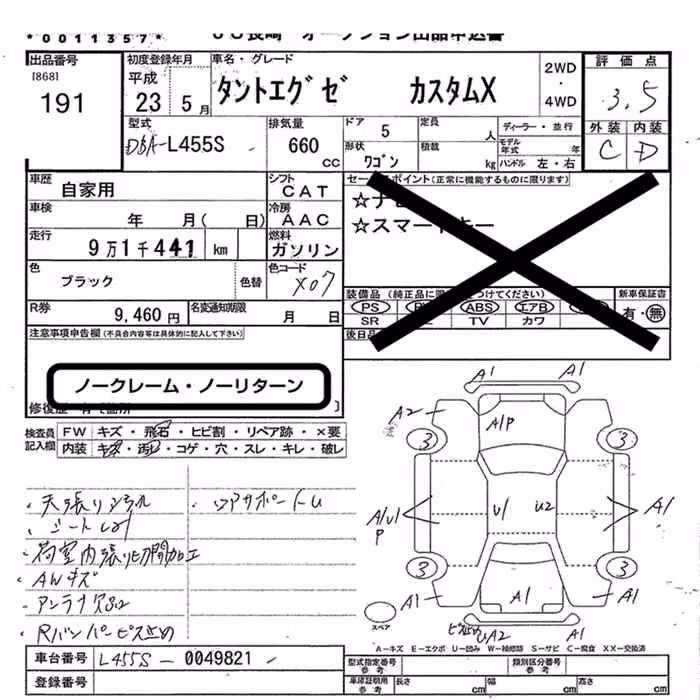 *0011357*
出品番号
[868]
191
初度登録年月
平成
23 5月
車名・グレード
タントエグゼ カスタムX
2WD
・
4WD
評価点
3.5
外装 内装
C D
型式
DBA-L455S
排気量
660
CC
ドア 5
形状
ワゴン
定員 人
積載 kg
ディーラー・並行
モデル年式 年
ハンドル 左・右
車歴
自家用
シフト
CAT
車検
年 月( 日)
冷房
AAC
走行
9万1千441 km
燃料
ガソリン
色
ブラック
色替
色コード
X07
R券
9,460円
名変通知期限
月 日
セールスポイント(正常に機能するものに限ります)
☆ナビ
☆スマートキー
装備品
PS
ABS
エアB
SR
TV
カワ
新車保証書
有・無
後日品
注意事項申告欄(不具合内容等は具体的に記入して下さい)
ノークレーム・ノーリターン
検査員
記入欄
FW キズ・飛石・ヒビ割・リペア跡・×要
内装 キズ・汚レ・コゲ・穴・スレ・キレ・破レ
・天張りシミル
・荷室内張り切開加工
・AWキズ
・アンテナ欠品
・Rバンパービス止め
A1
A1
A2
A/P
3
3
A/U1
P
U1
U2
A1
3
3
A1
A1
A1
ビス止め
UA2
スペア
A-キズ E-エクボ U-凹み W-補修跡 S-サビ C-腐食 XX-交換済
車台番号 L455S-0049821
登録番号
型式指定番号
参考
類別区分番号
参考
車庫証明用
参考
長さ cm
幅 cm
高さ cm